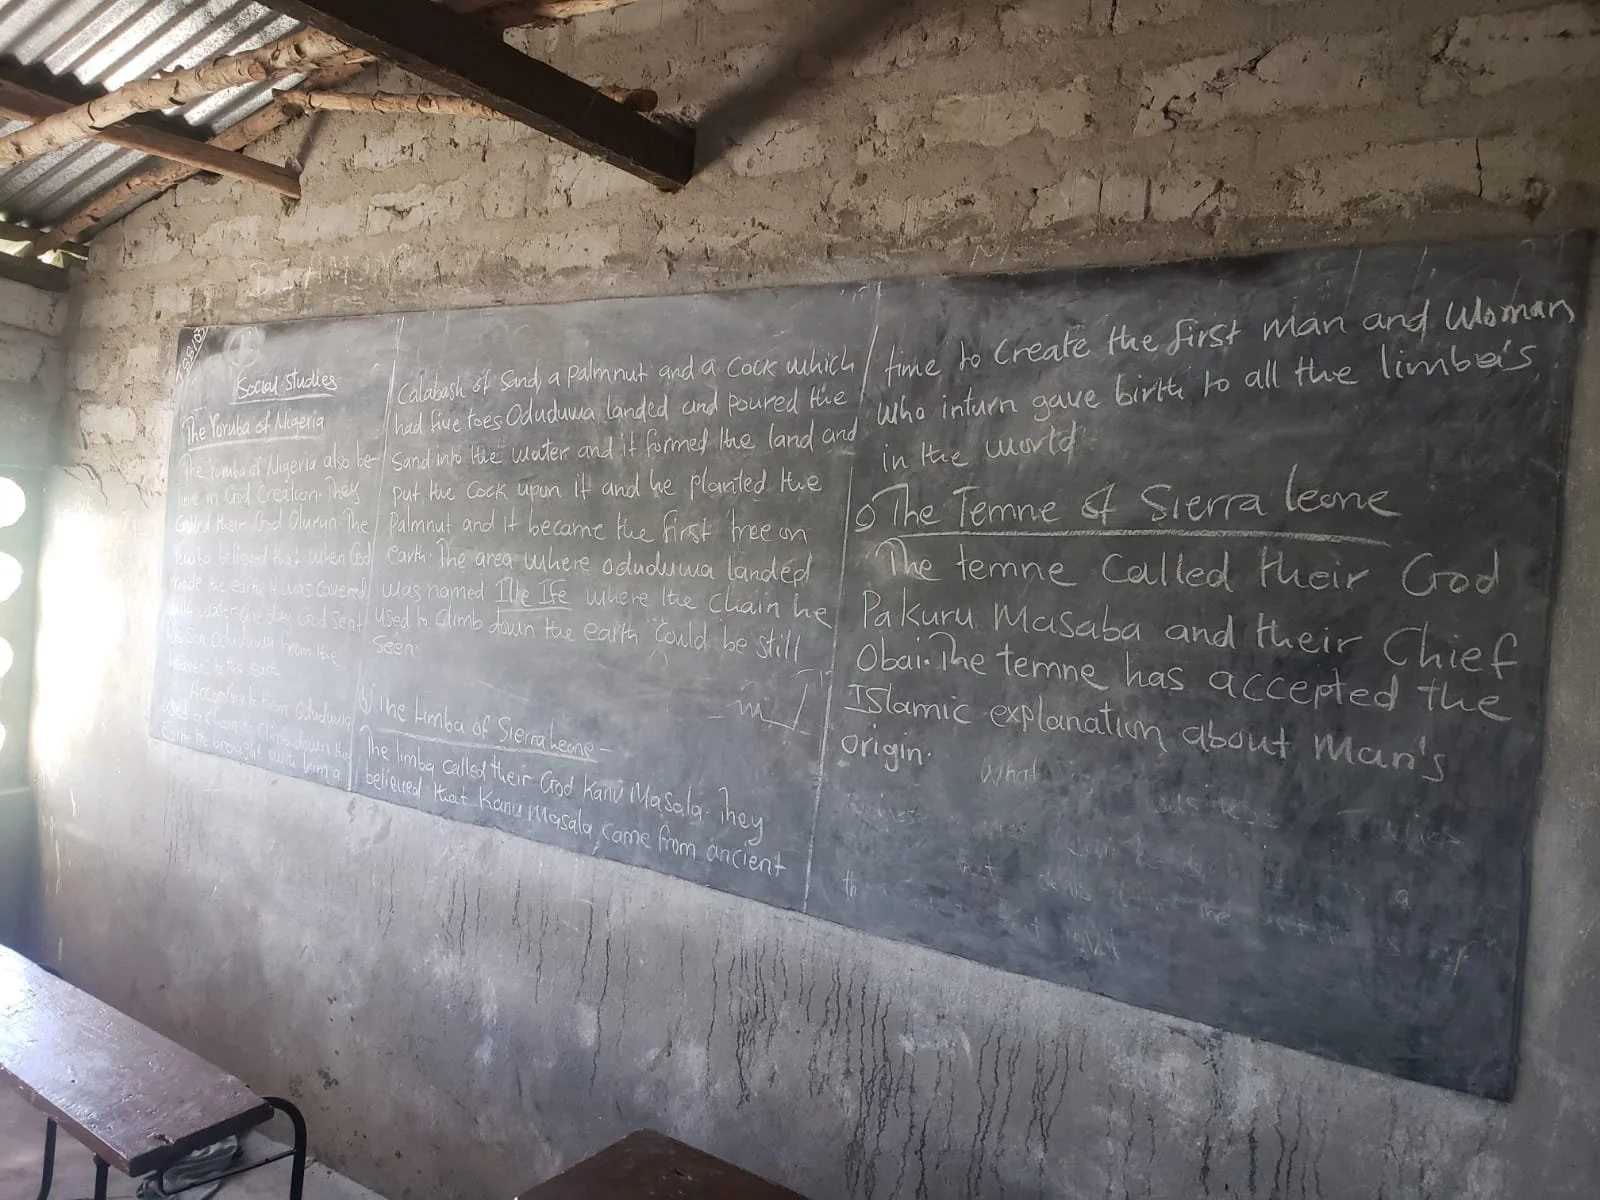 Social Studies
The Yoruba of Nigeria
The Yoruba of Nigeria also be-
lieve in God Creation. They
Called their God Olurun. The
Yoruba believed that when God
made the earth it was covered
with water. One day God sent
his Son Oduduwa from the
heavens to the earth
According to them Oduduwa
used a Chain to climb down the
Earth he brought with him a
Calabash of Sand, a palmnut and a Cock which
had five toes Oduduwa landed and poured the
Sand into the water and it formed the land and
put the Cock upon it and he planted the
Palmnut and it became the first tree on
earth. The area where oduduwa landed
was named Ille Ife where the Chain he
used to Climb down the earth could be still
Seen.
b) The Limba of Sierra Leone -
The limba called their God Kanu Masala. They
believed that Kanu Masala came from ancient
time to Create the first Man and Woman
Who inturn gave birth to all the limba's
in the world
c) The Temne of Sierra leone
The temne Called their God
Pakuru Masaba and their Chief
Obai. The temne has accepted the
Islamic explanation about Man's
origin.
What